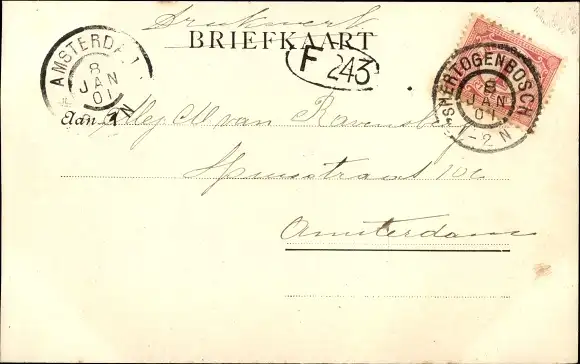 Drukwerk
BRIEFKAART
F 243
AMSTERDA
8
JAN
01
N
'S HERTOGENBOSCH
8
JAN
01
1-2 N
Aan Mej C M van Ravens
106
Amsterdam